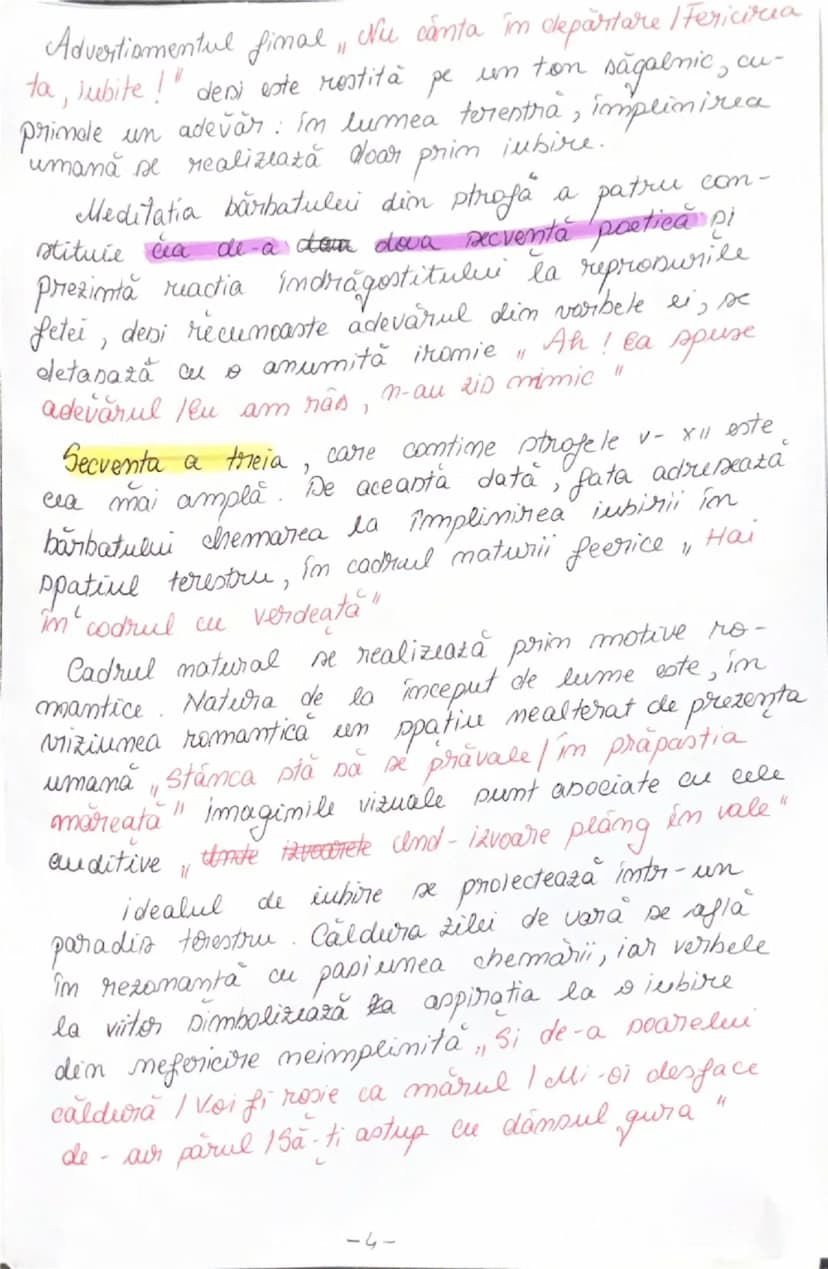 Advertismentul final „Nu cânta în depărtare / Fericirea
ta, iubite!" deși este rostită pe un ton șăgalnic, cu-
prinde un adevăr: în lumea terestră, împlinirea
umană se realizează doar prin iubire.
Meditația bărbatului din strofa a patru con-
stituie cea de-a doua secvență poetică și
prezintă reacția îndrăgostitului la reproșurile
fetei, deși recunoaște adevărul din vorbele ei, se
detașază cu o anumită ironie „Ah! Ea spuse
adevărul / Eu am râs, n-au zis nimic"
Secvența a treia, care conține strofele V- XII este
cea mai amplă. De această dată, fata adresează
bărbatului chemarea la împlinirea iubirii în
spațiul terestru, în cadrul naturii feerice „Hai
în codrul cu verdeață"
Cadrul natural se realizează prin motive ro-
mantice. Natura de la început de lume este, în
viziunea romantică un spațiu nealterat de prezența
umană „Stânca stă să se prăvale / în prăpastia
măreață" imaginile vizuale sunt asociate cu cele
auditive „Und-izvoare plâng în vale"
idealul de iubire se proiectează într-un
paradis terestru. Căldura zilei de vară se află
în rezonanță cu pasiunea chemării, iar verbele
la viitor simbolizează aspirația la o iubire
din nefericire neîmplinită „Și de-a soarelui
căldură / Voi fi roșie ca mărul / Mi-oi desface
de-aur părul / Să-ți astup cu dânsul gura"
-4-